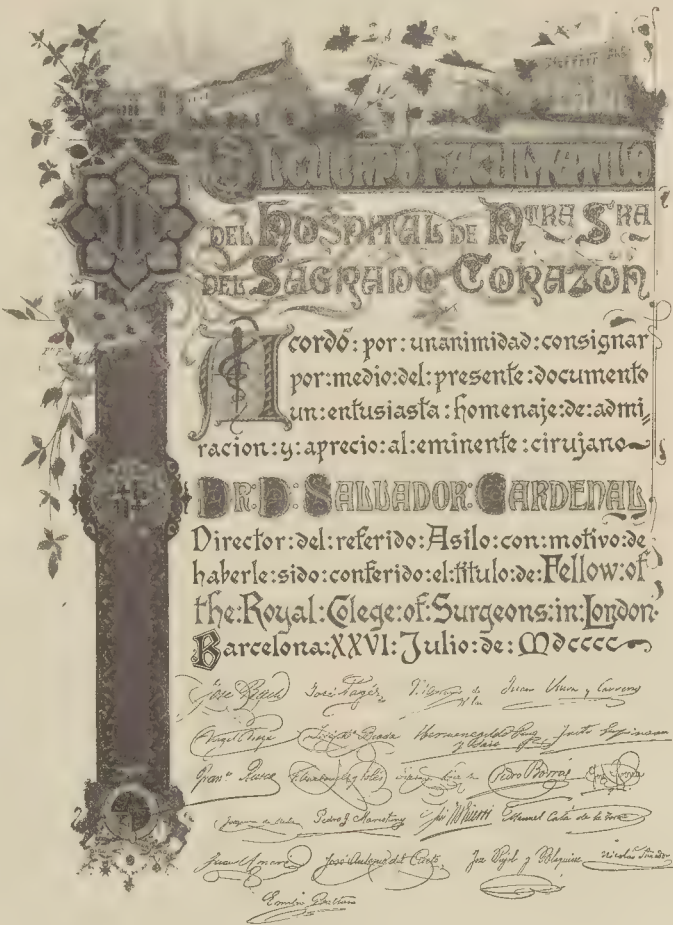 El Cuerpo Facultativo
del Hospital de Ntra Sra
del Sagrado Corazon
Acordó: por: unanimidad: consignar
por: medio: del: presente: documento
un: entusiasta: homenaje: de: admi,
racion: y: aprecio: al: eminente: cirujano
Dr: D: Salvador: Cardenal
Director: del: referido: Asilo: con: motivo: de
haberle: sido: conferido: el: título: de: Fellow: of
the: Royal: Colege: of: Surgeons: in: London.
Barcelona: XXVI: Julio: de: MDCCCC
José
José Juan Viura y Carreras
Hermenegildo Justo
Franco Pedro Borrás
Pedro J Emanuel Calá de la
Juan José Antonio del José Pujol y
Emilio